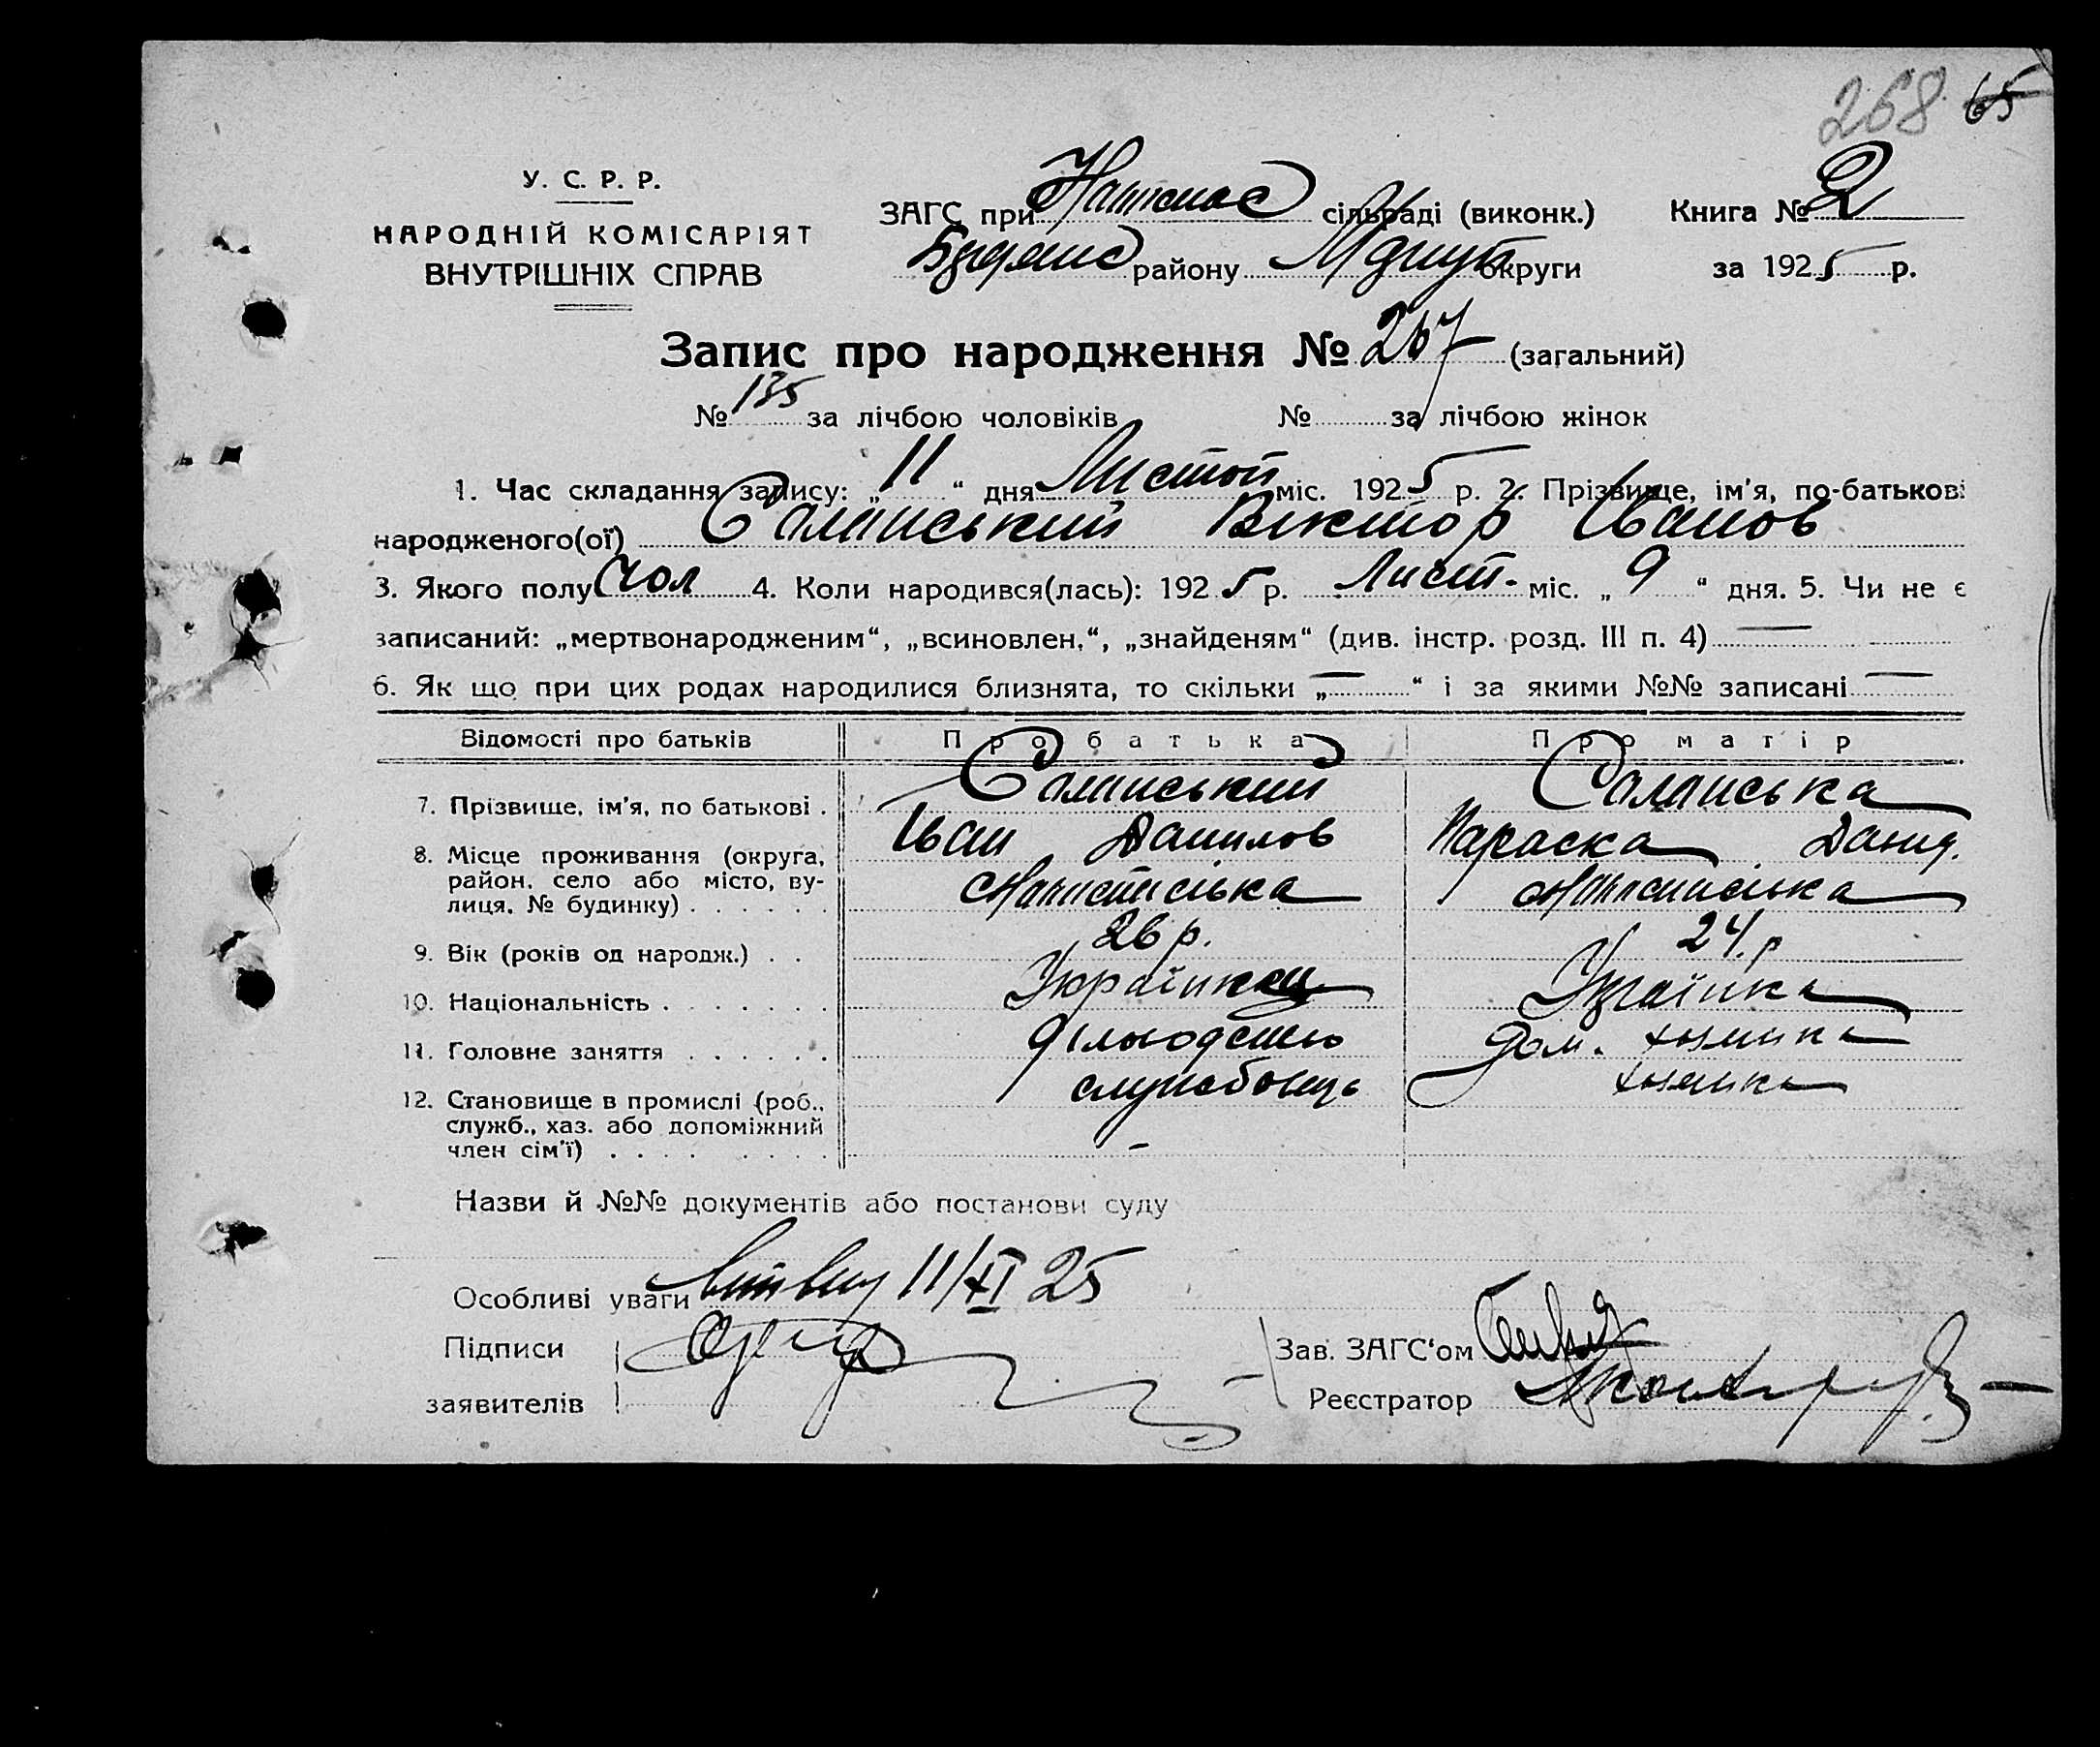 268 65
У. С. Р. Р.
НАРОДНІЙ КОМІСАРІЯТ
ВНУТРІШНІХ СПРАВ
ЗАГС при сільраді (виконк.) Книга № 2
району округи за 1925 р.
Запис про народження № 267 (загальний)
№ 135 за лічбою чоловіків № за лічбою жінок
1. Час складання запису: „ 11 “ дня Листоп міс. 1925 р. 2. Прізвище, ім'я, по-батькові
народженого(ої) Саланський Віктор Іванов
3. Якого полу чол 4. Коли народився(лась): 1925 р. Лист. міс. „ 9 “ дня. 5. Чи не є
записаний: „мертвонародженим“, „всиновлен.“, „знайденям“ (див. інстр. розд. III п. 4) —
6. Як що при цих родах народилися близнята, то скільки „ — “ і за якими №№ записані —
Відомості про батьків Про батька Про матір
7. Прізвище, ім'я, по батькові . Саланський Саланська
Іван Данилов Параска Данид.
8. Місце проживання (округа,
район, село або місто, ву-
лиця, № будинку) . . . . . .
9. Вік (років од народж.) . . 26 р. 24 р
10. Національність . . . . . . . Українец Українка
11. Головне заняття . . . . . . діловодство Дом.
12. Становище в промислі (роб.,
служб., хаз. або допоміжний
член сім'ї) . . . . . . . . службовець
-
Назви й №№ документів або постанови суду
Особливі уваги 11/XI 25
Підписи
заявителів
Зав. ЗАГС‘ом
Реєстратор